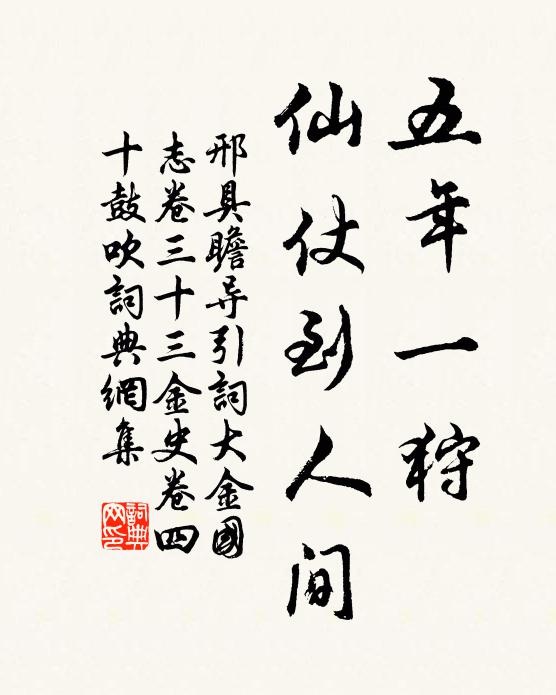 五年一狩
仙仗到人间
邢具瞻导引詞大金國
志卷三十三金史卷四
十鼓吹詞典網集
詞典
网印